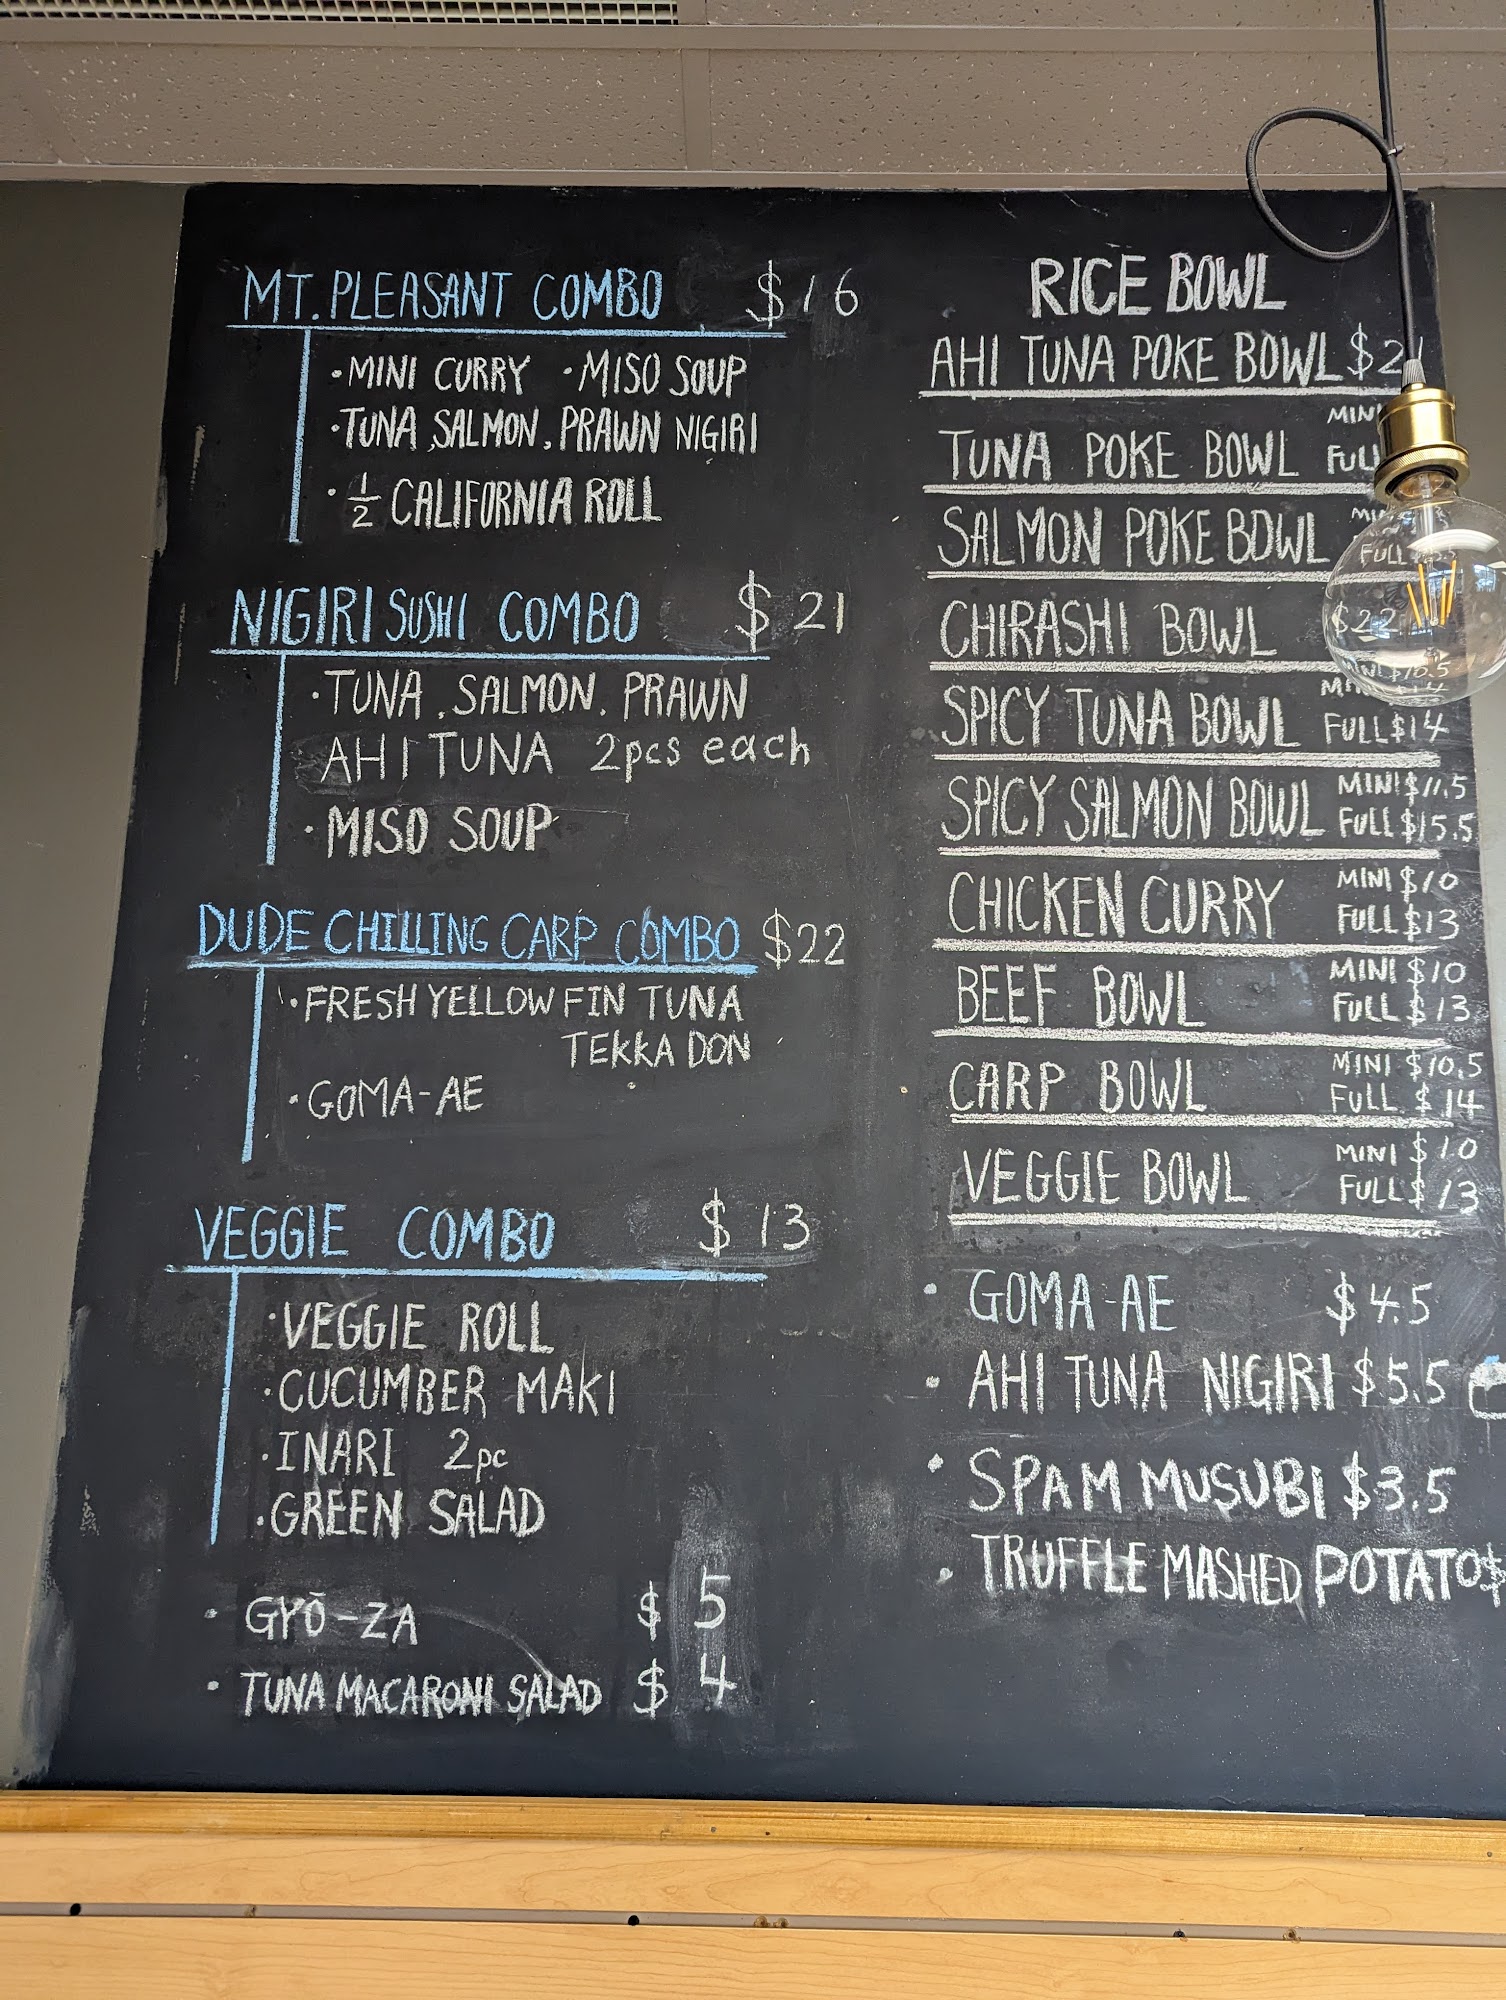 MT. PLEASANT COMBO $16
·MINI CURRY ·MISO SOUP
·TUNA, SALMON, PRAWN NIGIRI
·1/2 CALIFORNIA ROLL
NIGIRI SUSHI COMBO $21
·TUNA, SALMON, PRAWN
AHI TUNA 2pcs each
·MISO SOUP
DUDE CHILLING CARP COMBO $22
·FRESH YELLOWFIN TUNA
TEKKA DON
·GOMA-AE
VEGGIE COMBO $13
·VEGGIE ROLL
·CUCUMBER MAKI
·INARI 2pc
·GREEN SALAD
· GYŌ-ZA $5
· TUNA MACARONI SALAD $4
RICE BOWL
AHI TUNA POKE BOWL
TUNA POKE BOWL
SALMON POKE BOWL
FULL
CHIRASHI BOWL $22
SPICY TUNA BOWL
FULL $14
SPICY SALMON BOWL MINI $11.5
FULL $15.5
CHICKEN CURRY MINI $10
FULL $13
BEEF BOWL MINI $10
FULL $13
CARP BOWL MINI $10.5
FULL $14
VEGGIE BOWL MINI $10
FULL $13
· GOMA-AE $4.5
· AHI TUNA NIGIRI $5.5
· SPAM MUSUBI $3.5
· TRUFFLE MASHED POTATO $